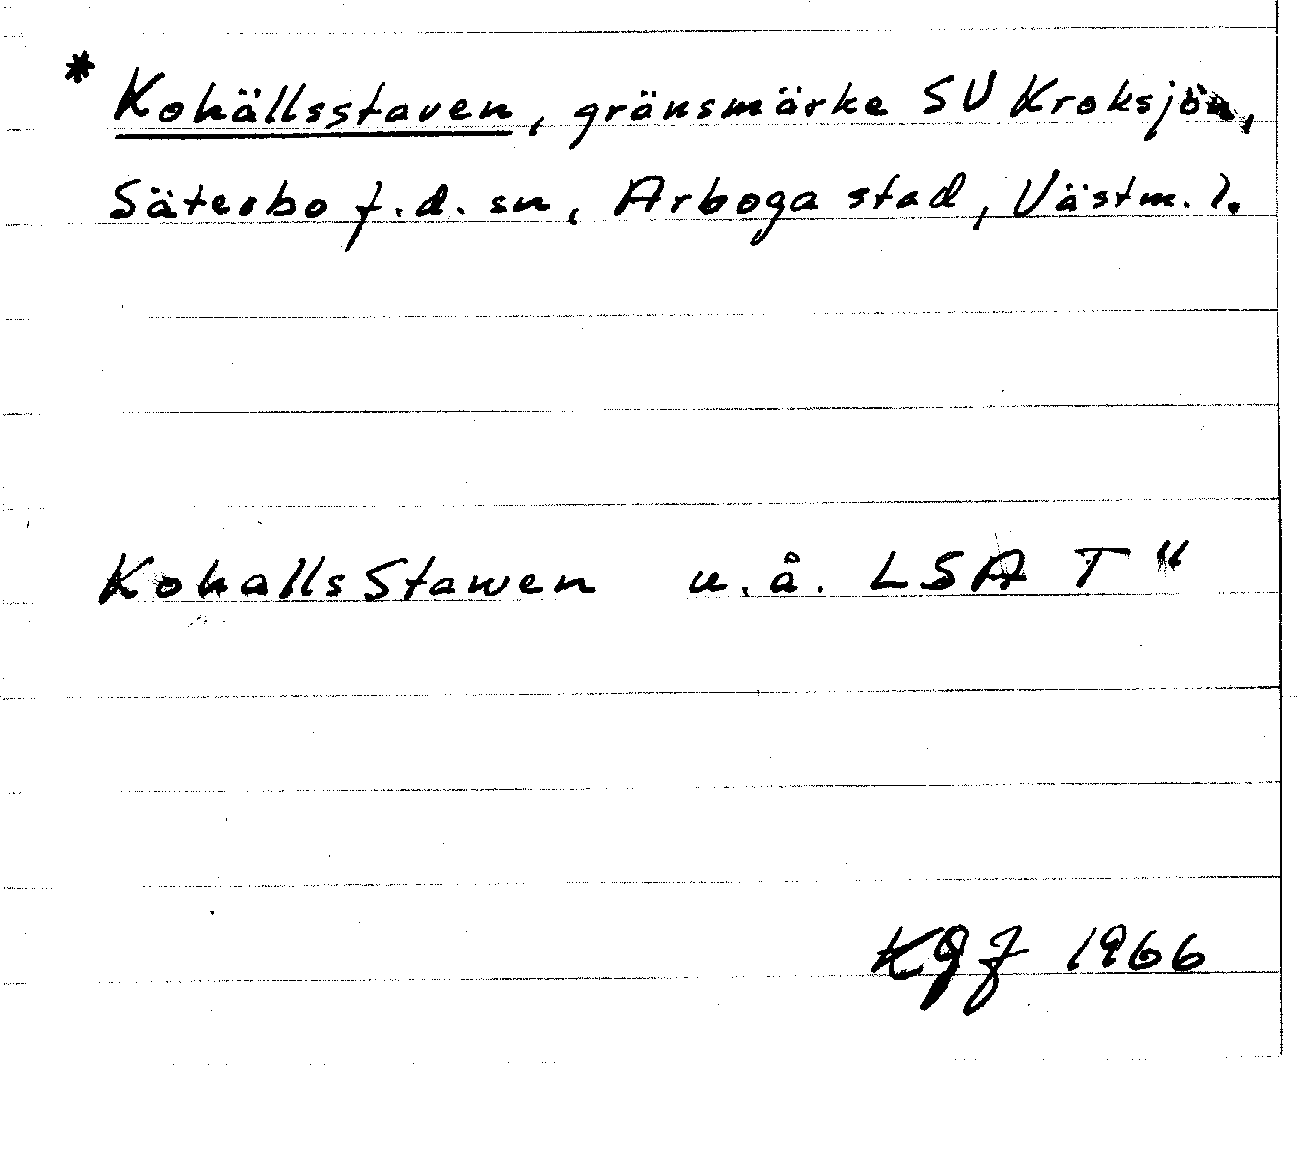 * Kohällsstaven, gränsmärke SV Kroksjön,
Säterbo f.d. sn, Arboga stad, Västm. l.
Kohalls Stawen u.å. LSA T"
KgF 1966